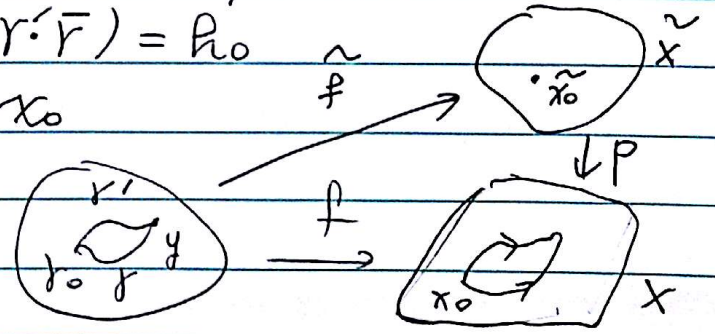 γ'·γ̄) = h₀
x₀
f̃
X̃
x̃₀
↓ p
γ'
y
y₀ γ
f
x₀
X